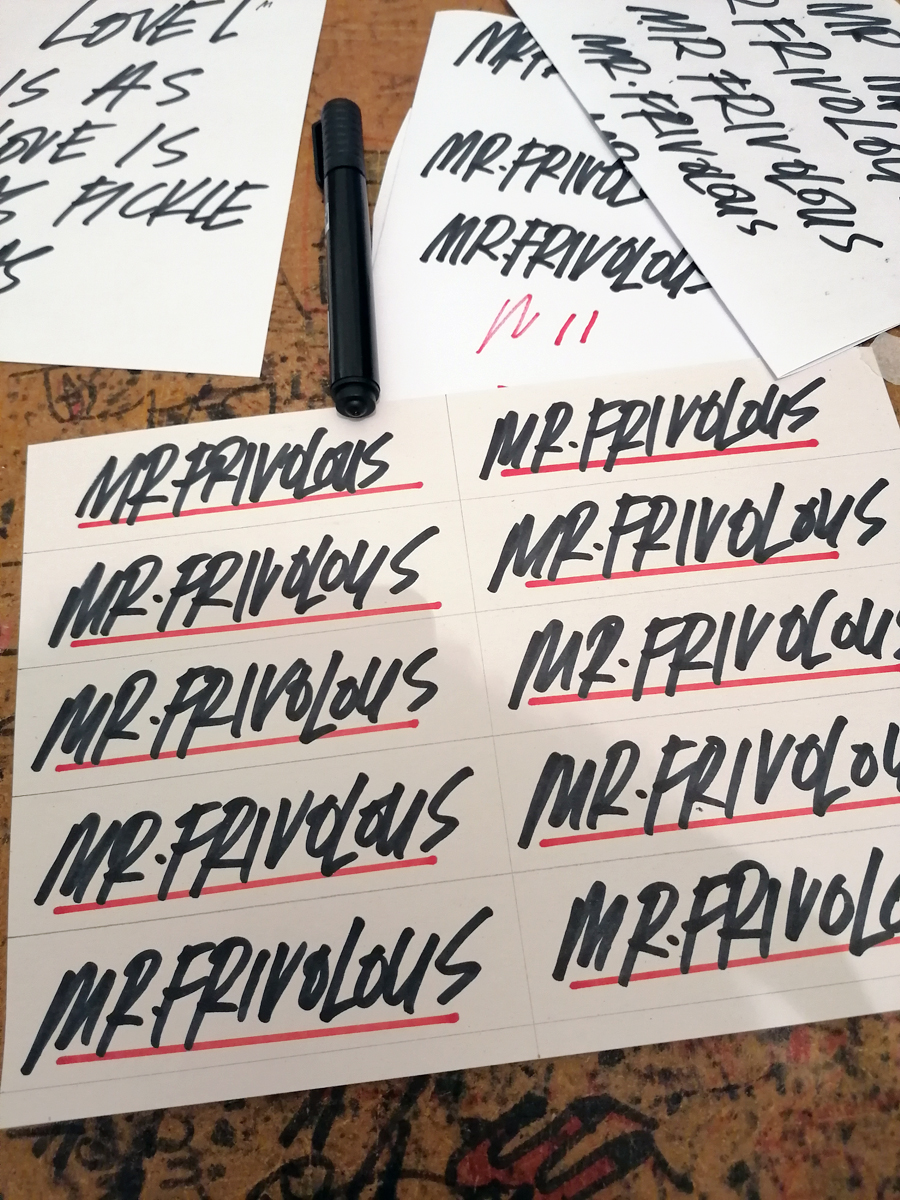 LOVE
IS AS
LOVE IS
FICKLE
AS
MR.FRIVOL
MR.FRIVOLOUS
MR
FRIVOLOU
MR FRIVOLOUS
MR.FRIVOLOUS
MR.FRIVOLOUS
MR.FRIVOLOUS
MR.FRIVOLOUS
MR.FRIVOLOUS
MR.FRIVOLOUS
MR.FRIVOLOUS
MR.FRIVOLOUS
MR.FRIVOLOU
MR.FRIVOLOUS
MR.FRIVOL